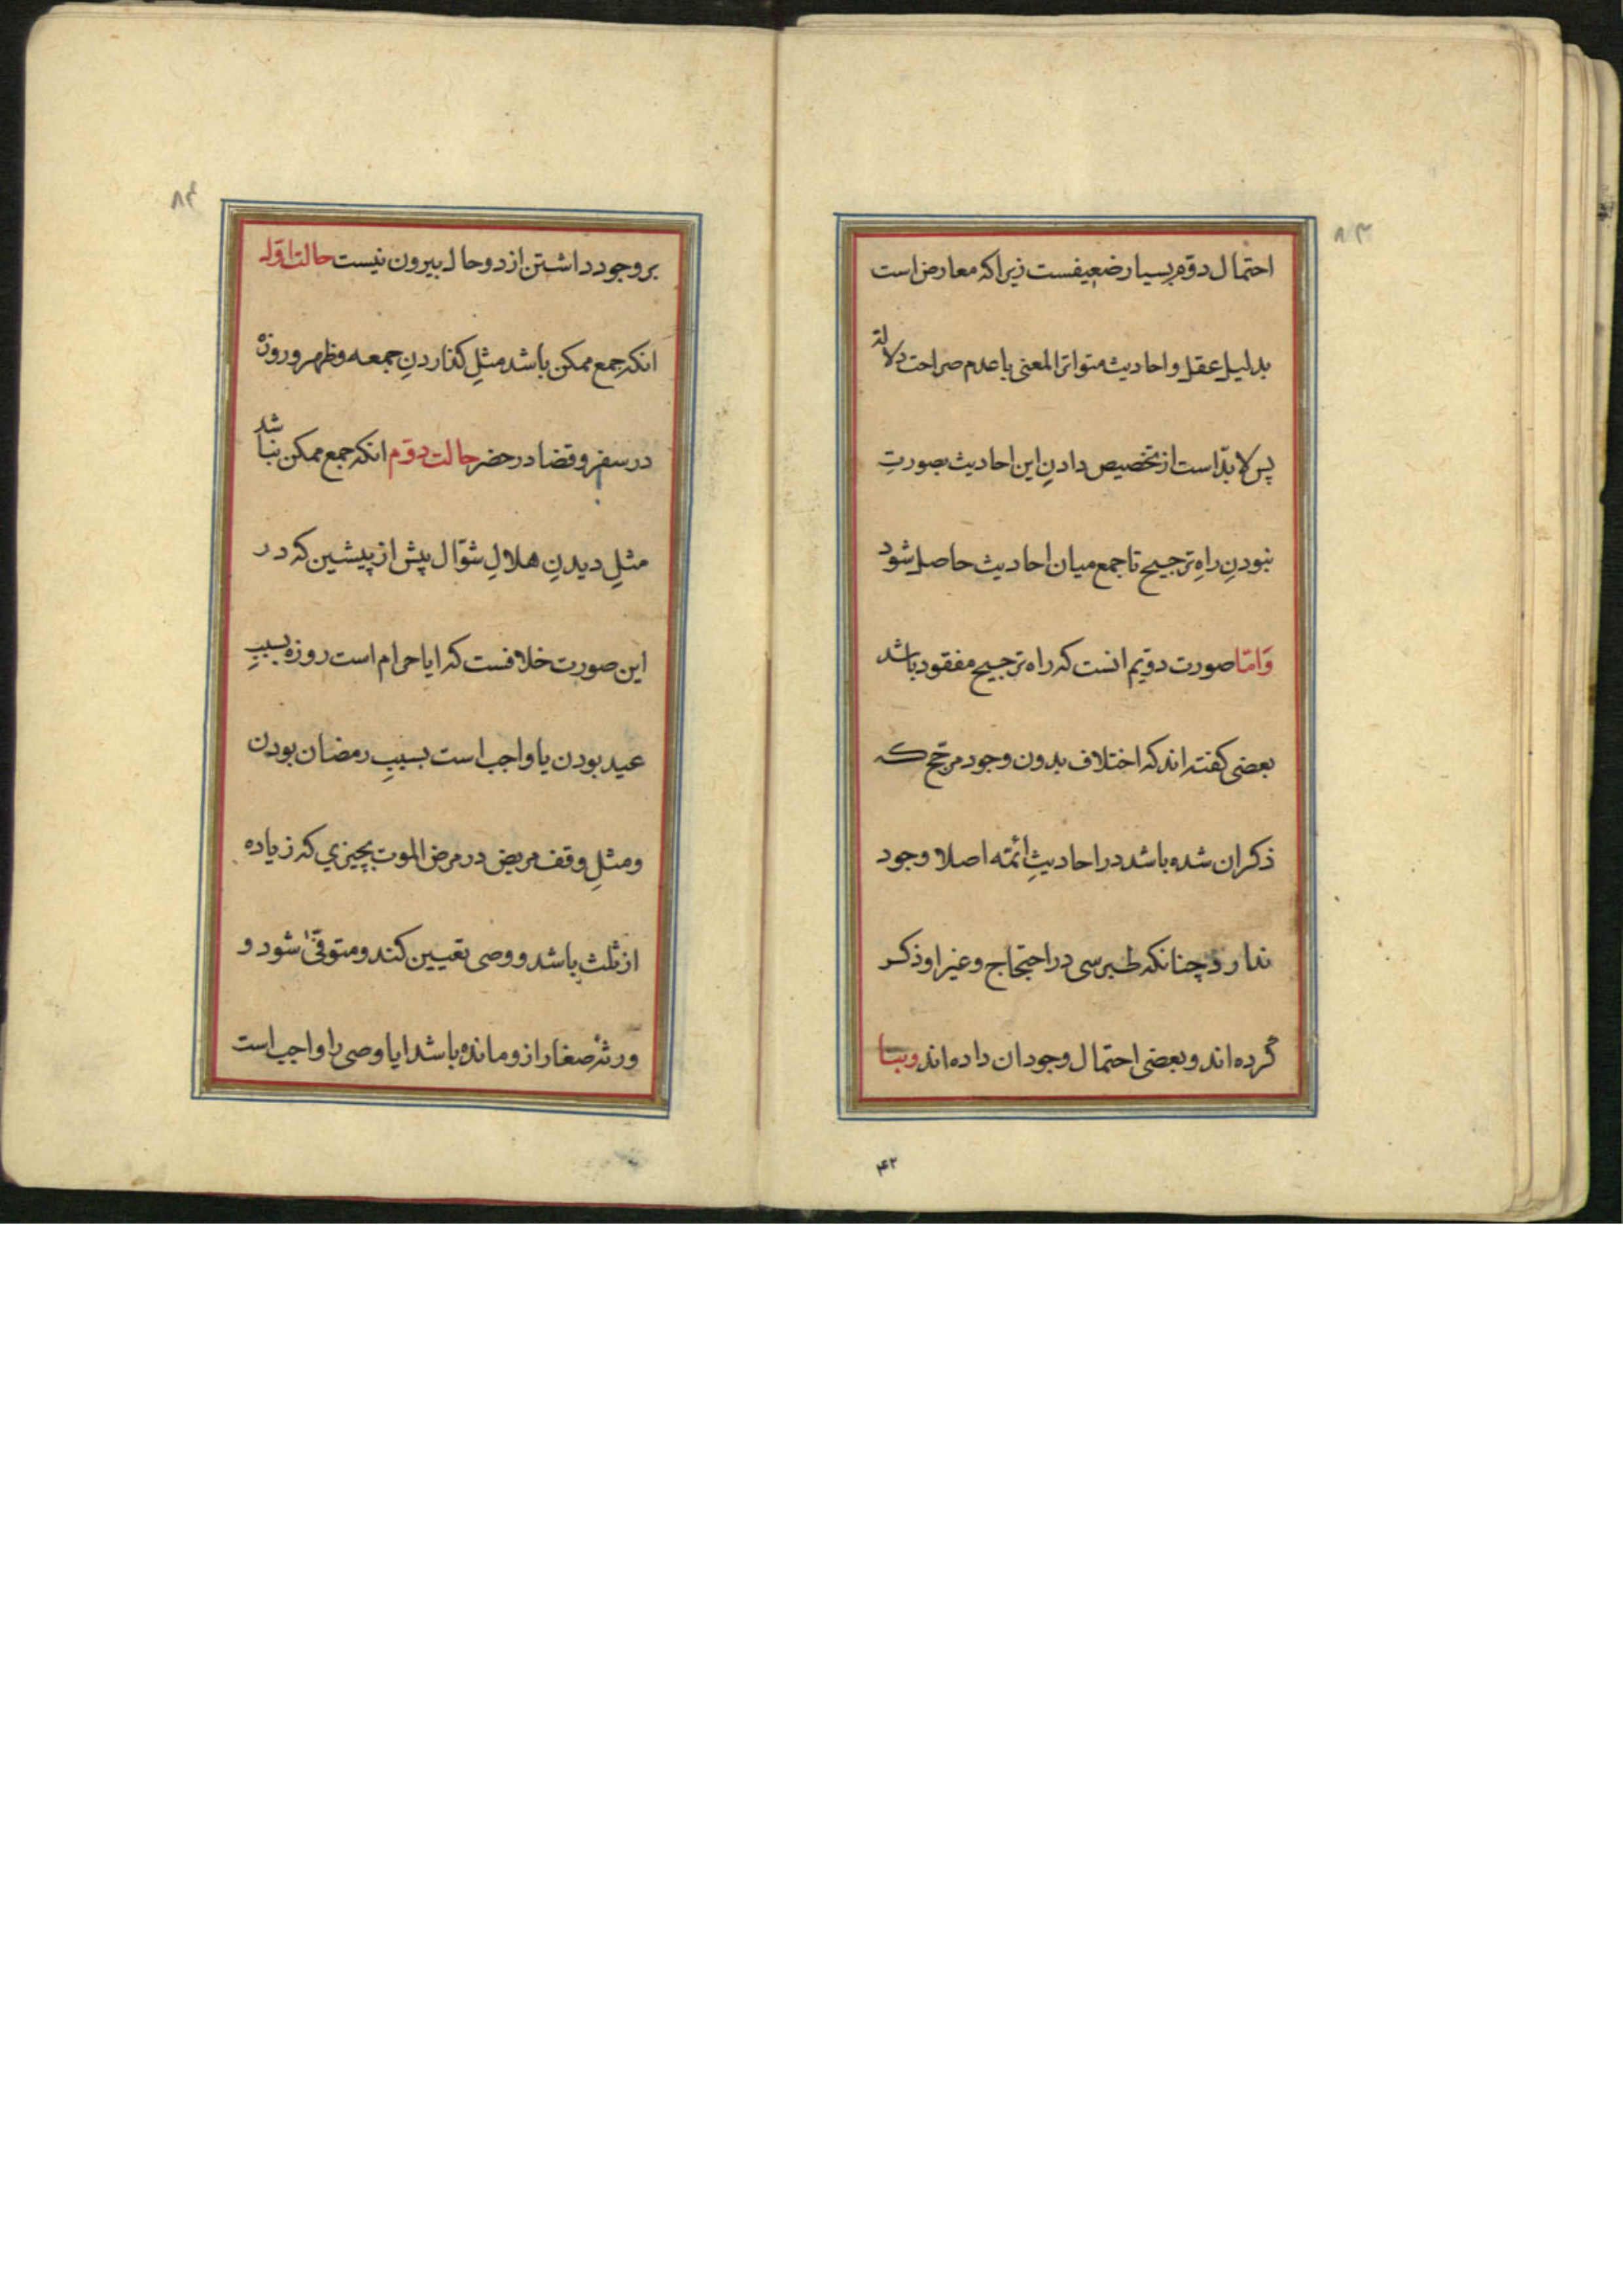 ۸۳
احتمال دوّم بسیار ضعیفست زیرا که معارض است
بدلیل عقل و احادیث متواتر المعنی با عدم صراحت دلالة
پس لا بدّ است از تخصیص دادنِ این احادیث بصورتِ
نبودنِ راهِ ترجیح تا جمع میان احادیث حاصل شود
وَامّا صورت دوّیم انست که راه ترجیح مفقود باشد
بعضی کفته اند که اختلاف بدون وجود مرجّح که
ذکر ان شده باشد در احادیثِ ائمّه اصلا وجود
ندارد چنانکه طبرسی در احتجاج و غیر او ذکر
کرده اند و بعضی احتمال وجود ان داده اند وبنا
۴۲
۸۴
بر وجود داشتن از دو حال بیرون نیست حالت اوّل
انکه جمع ممکن باشد مثلِ کذاردنِ جمعه و ظهر و روزه
در سفر و قضا در حضر حالت دوّم انکه جمع ممکن نباشد
مثلِ دیدنِ هلالِ شوّال پیش از پیشین که در
این صورت خلافست که ایا حرام است روزه بسببِ
عید بودن یا واجب است بسببِ رمضان بودن
و مثلِ وقف مریض در مرض الموت بچیزی که زیاده
از ثلث باشد و وصی تعیین کند و متوفّیٰ شود و
ورثهٔ صغار ازو مانده باشد ایا وصی را واجب است